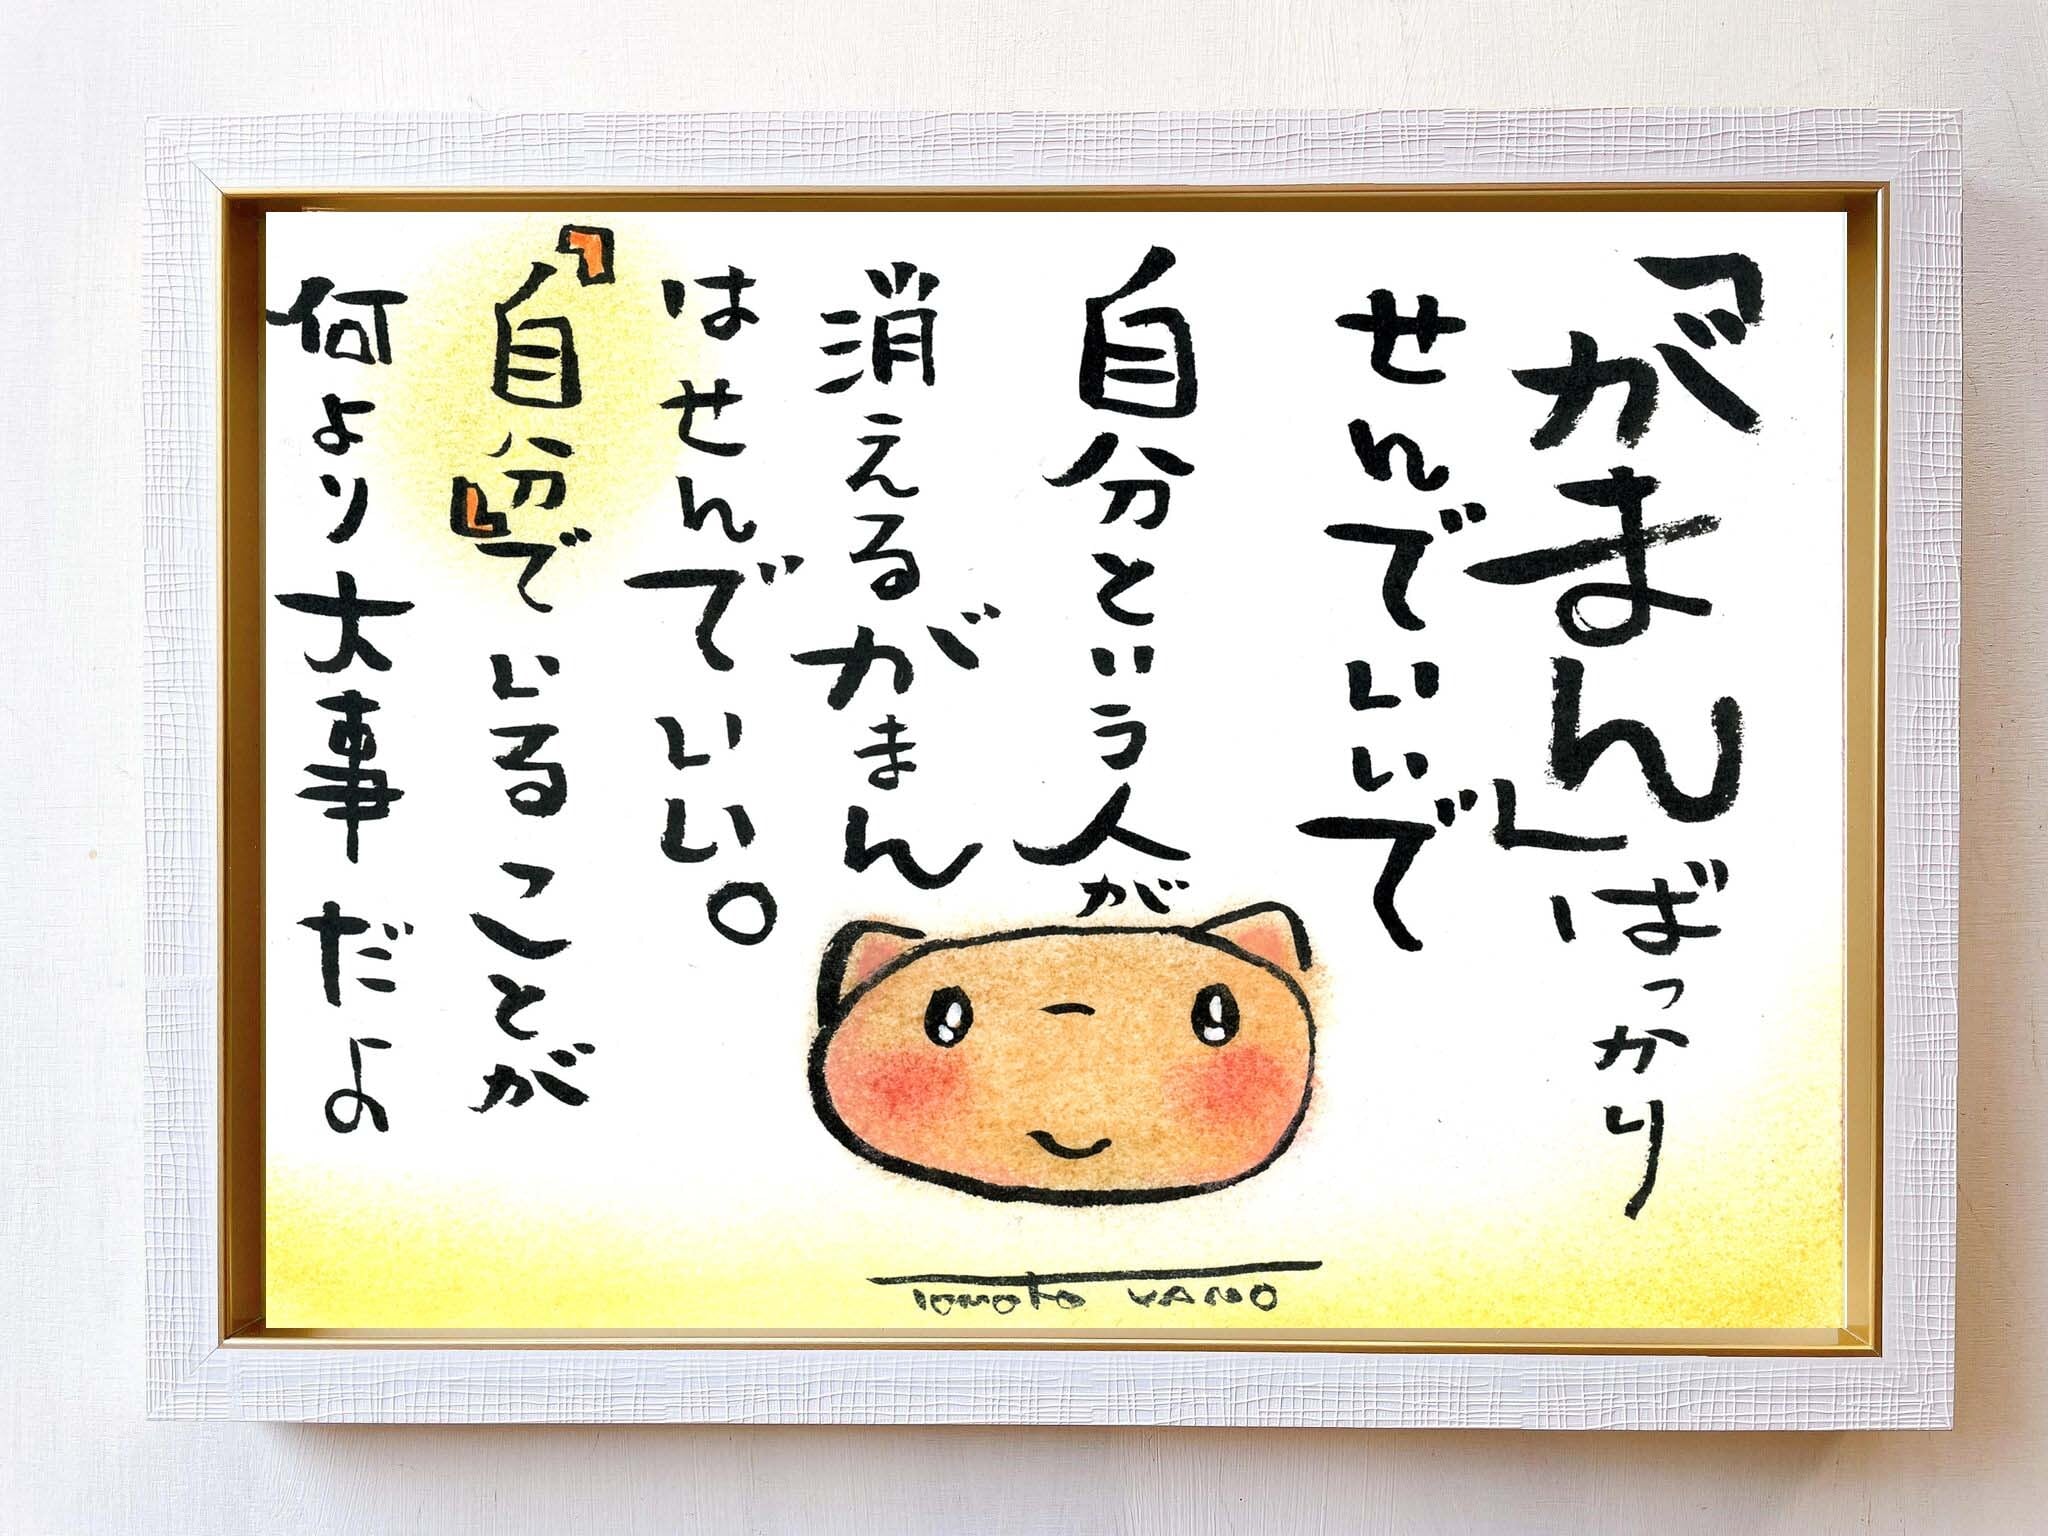 「がまん」ばっかり
せんでいいで
自分という人が
消えるがまん
はせんでいい。
『自分』でいることが
何より大事だよ
TOMOTO YANO